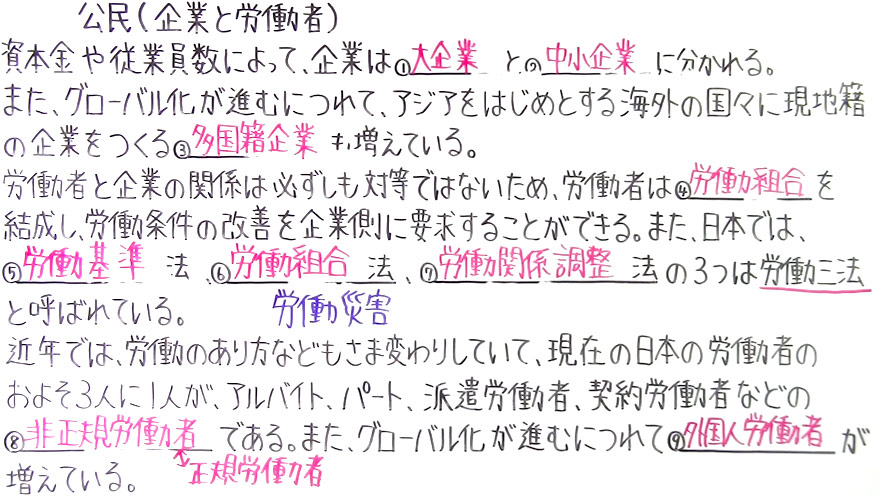 公民(企業と労働者)
資本金や従業員数によって、企業は①大企業 と、②中小企業 に分かれる。
また、グローバル化が進むにつれて、アジアをはじめとする海外の国々に現地籍
の企業をつくる③多国籍企業 も増えている。
労働者と企業の関係は必ずしも対等ではないため、労働者は④労働力組合 を
結成し、労働条件の改善を企業側に要求することができる。また、日本では、
⑤労働基準 法、⑥労働組合 法、⑦労働関係調整 法の3つは労働三法
と呼ばれている。 労働災害
近年では、労働のあり方などもさま変わりしていて、現在の日本の労働者の
およそ3人に1人が、アルバイト、パート、派遣労働者、契約労働者などの
⑧非正規労働者 である。また、グローバル化が進むにつれて⑨外国人労働者 が
増えている。 正規労働者